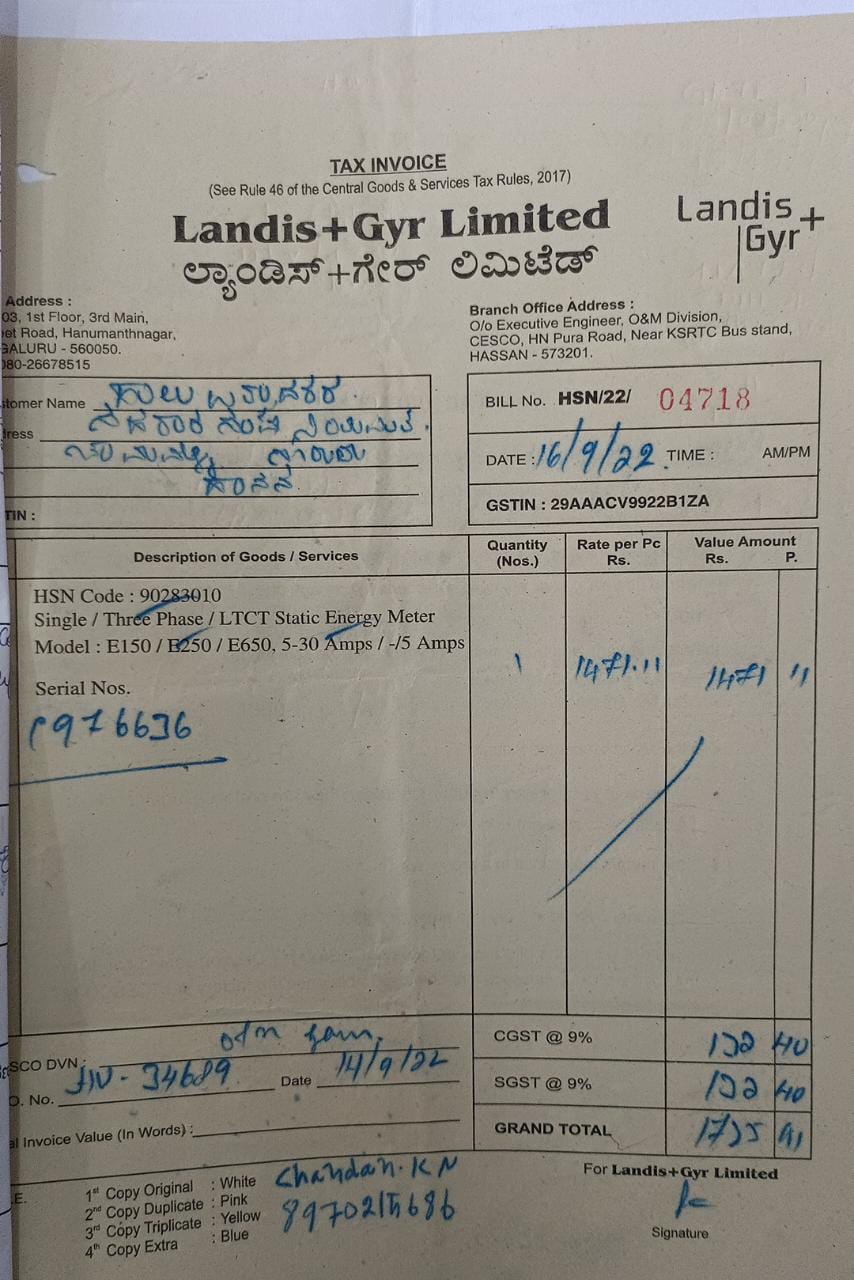 TAX INVOICE
(See Rule 46 of the Central Goods & Services Tax Rules, 2017)
Landis+Gyr Limited
ಲ್ಯಾಂಡಿಸ್+ಗೇರ್ ಲಿಮಿಟೆಡ್
Landis
Gyr+
Address :
03, 1st Floor, 3rd Main,
et Road, Hanumanthnagar,
GALURU - 560050.
080-26678515
Branch Office Address :
O/o Executive Engineer, O&M Division,
CESCO, HN Pura Road, Near KSRTC Bus stand,
HASSAN - 573201.
tomer Name
ress
ಹಾಸನ
TIN :
BILL No. HSN/22/ 04718
DATE : 16/9/22 TIME : AM/PM
GSTIN : 29AAACV9922B1ZA
Description of Goods / Services
Quantity (Nos.)
Rate per Pc Rs.
Value Amount Rs. P.
HSN Code : 90283010
Single / Three Phase / LTCT Static Energy Meter
Model : E150 / E250 / E650, 5-30 Amps / -/5 Amps
1 1471.11 1471 11
Serial Nos.
976636
CGST @ 9% 132 40
SCO DVN :
O. No. 34689 Date 14/9/22
SGST @ 9% 132 40
al Invoice Value (In Words) :
GRAND TOTAL 1735 91
.E.
1st Copy Original : White
2nd Copy Duplicate : Pink
3rd Copy Triplicate : Yellow
4th Copy Extra : Blue
Chandan. K N
8970215686
For Landis+Gyr Limited
Signature